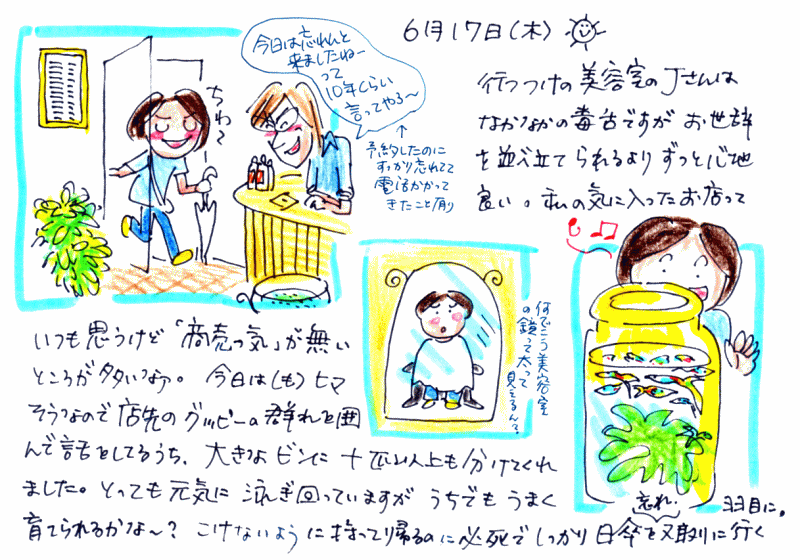 6月17日(木)
今日は忘れんと
来ましたねー
って
10年くらい
言ってやろ〜
ちわ〜
↑
予約したのに
すっかり忘れてて
電話かかって
きたこと有り
行きつけの美容室のJさんは
なかなかの毒舌ですが お世辞
を並べ立てられるより ずっと心地
良い。私の気に入ったお店って
いつも思うけど「商売っ気」が無い
ところが多いなァ。 今日は(も)ヒマ
そうなので店先のグッピーの群れを囲
んで話をしてるうち、大きなビンに十匹以上も分けてくれ
ました。とっても元気に泳ぎ回っていますが うちでもうまく
育てられるかな〜? こけないように持って帰るのに必死でしっかり日傘を又取りに行く
忘れ.
ヨヨ日に。
何でこう美容室
の鏡って太って
見えるん?